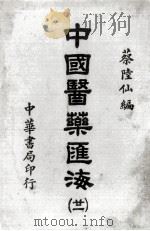 蔡陸仙編
中國醫藥匯海
(廿)
中華書局印行
www.docsriver.com